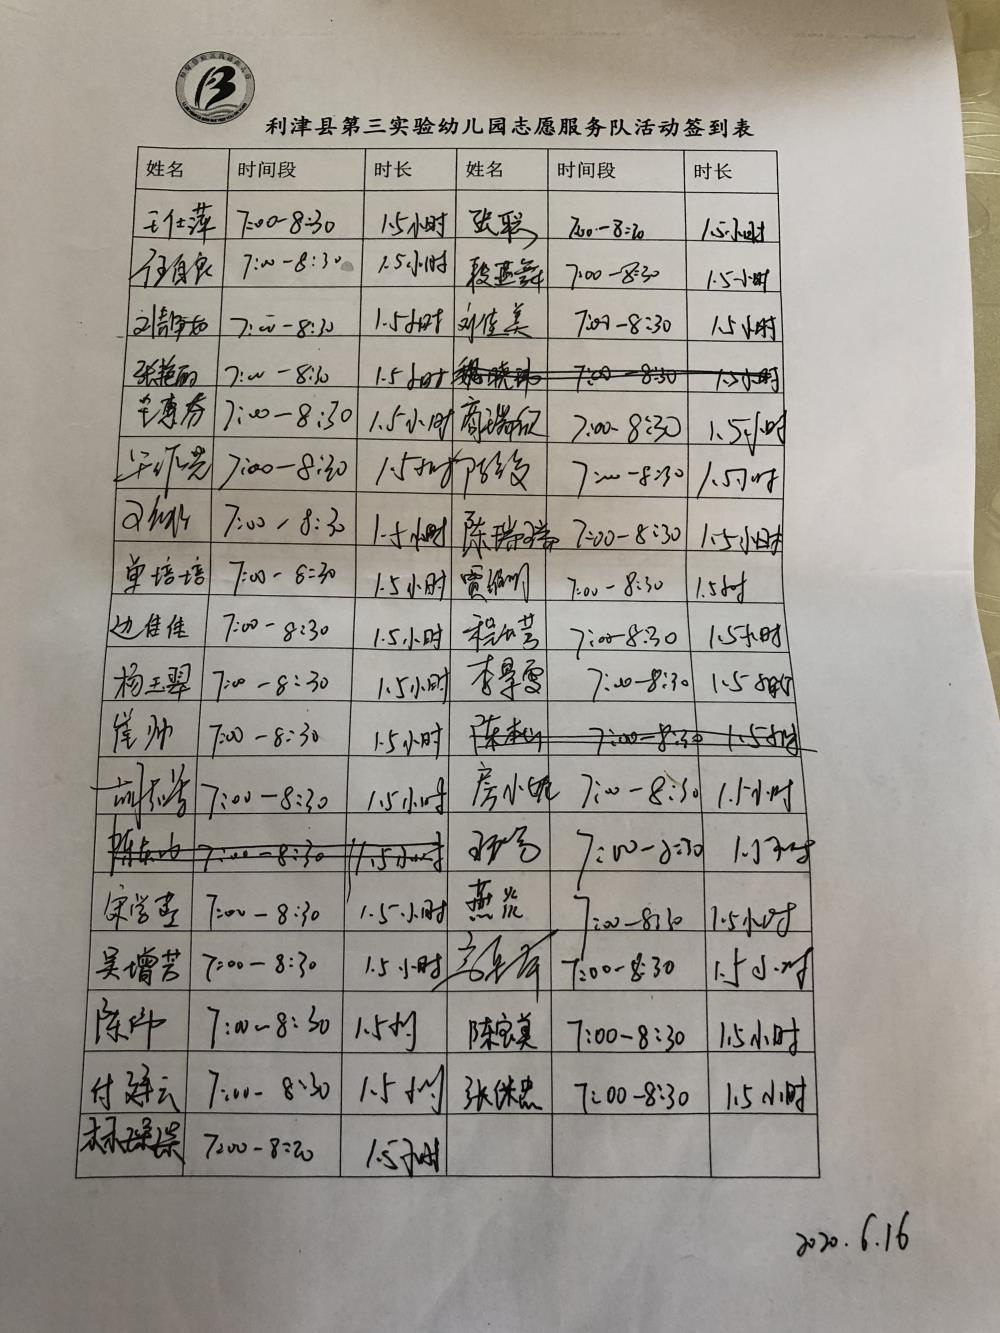 利津县第三实验幼儿园志愿服务队活动签到表
姓名 时间段 时长 姓名 时间段 时长
王仕萍 7:00-8:30 1.5小时 张聪 7:00-8:30 1.5小时
7:00-8:30 1.5小时 段燕舞 7:00-8:30 1.5小时
刘静 7:00-8:30 1.5小时 刘佳美 7:00-8:30 1.5小时
张艳丽 7:00-8:30 1.5小时 魏晓 7:00-8:30 1.5小时
7:00-8:30 1.5小时 商瑞欣 7:00-8:30 1.5小时
7:00-8:30 1.5小时 7:00-8:30 1.5小时
7:00-8:30 1.5小时 陈瑞瑞 7:00-8:30 1.5小时
单培培 7:00-8:30 1.5小时 贾 7:00-8:30 1.5小时
边佳佳 7:00-8:30 1.5小时 程 芳 7:00-8:30 1.5小时
杨玉翠 7:00-8:30 1.5小时 李景雪 7:00-8:30 1.5小时
崔帅 7:00-8:30 1.5小时 陈 7:00-8:30 1.5小时
胡 7:00-8:30 1.5小时 房小 7:00-8:30 1.5小时
陈 7:00-8:30 1.5小时 7:00-8:30 1.5小时
宋学 7:00-8:30 1.5小时 燕 7:00-8:30 1.5小时
吴增芳 7:00-8:30 1.5小时 7:00-8:30 1.5小时
陈 7:00-8:30 1.5小时 陈宝真 7:00-8:30 1.5小时
付 云 7:00-8:30 1.5小时 张 忠 7:00-8:30 1.5小时
7:00-8:30 1.5小时
2020.6.16